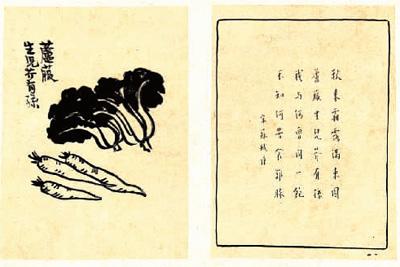 蘆菔
生兒芥有孫
秋来霜露滿東園
蘆菔生兒芥有孫
我与何曾同一飽
不知何苦食雞豚
宋蘇軾詩